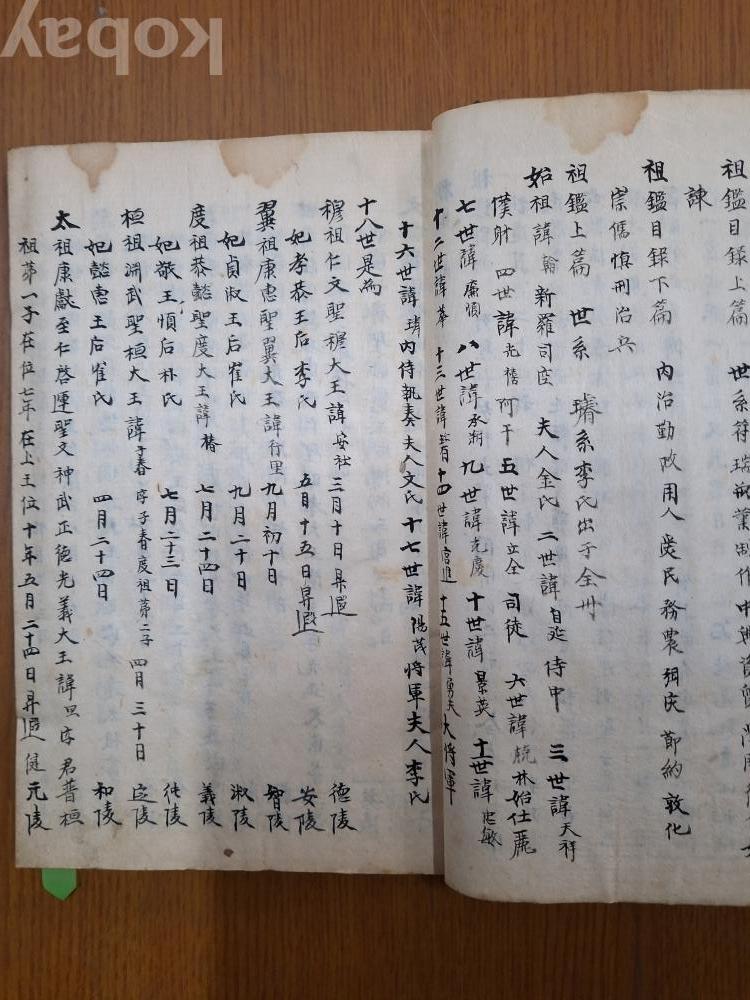 祖鑑目录上篇 世系符瑞
諫
祖鑑目录下篇 內治勤政用人愛民務農 節約敦化
崇儒慎刑治兵
祖鑑上篇 世系 璿系李氏出于全州
始祖諱翰新羅司空 夫人金氏 二世諱自延侍中 三世諱天祥
僕射 四世諱光禧阿干 五世諱立全司徒 六世諱兢休始仕麗
七世諱廉順 八世諱承朔 九世諱充慶 十世諱景英 十一世諱忠敏
十二世諱華 十三世諱珍有 十四世諱宮進 十五世諱勇夫大將軍
十六世諱璘內侍執奏夫人文氏 十七世諱陽茂將軍夫人李氏
十八世是為
穆祖仁文聖穆大王諱安社 三月十日昇遐 德陵
妃孝恭王后李氏 五月十五日昇遐 安陵
翼祖康惠聖翼大王諱行里 九月初十日 智陵
妃貞淑王后崔氏 九月二十日 淑陵
度祖恭懿聖度大王諱椿 七月二十四日 義陵
妃敬王順后朴氏 七月二十三日 純陵
桓祖淵武聖桓大王諱子春 字子春度祖第二子 四月三十日 定陵
妃懿惠王后崔氏 四月二十四日 和陵
太祖康獻至仁啓運聖文神武正德光義大王諱旦字君晉桓
祖第一子在位七年在上王位十年五月二十四日昇遐健元陵
kobay